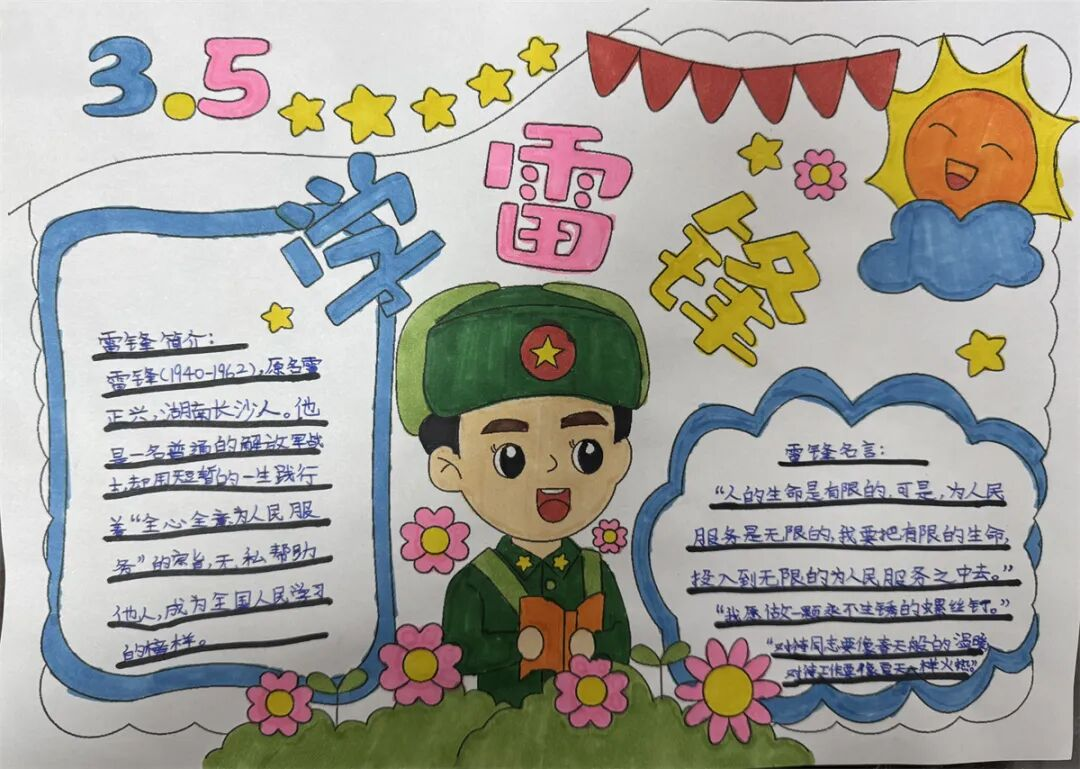 3.5
学雷锋
雷锋简介：
雷锋(1940-1962)，原名雷
正兴，湖南长沙人。他
是一名普通的解放军战
士，却用短暂的一生践行
着“全心全意为人民服
务”的宗旨，无私帮助
他人，成为全国人民学习
的榜样。
雷锋名言：
“人的生命是有限的，可是，为人民
服务是无限的，我要把有限的生命，
投入到无限的为人民服务之中去。”
“我愿做一颗永不生锈的螺丝钉。”
“对待同志要像春天般的温暖
对待工作要像夏天一样火热。”